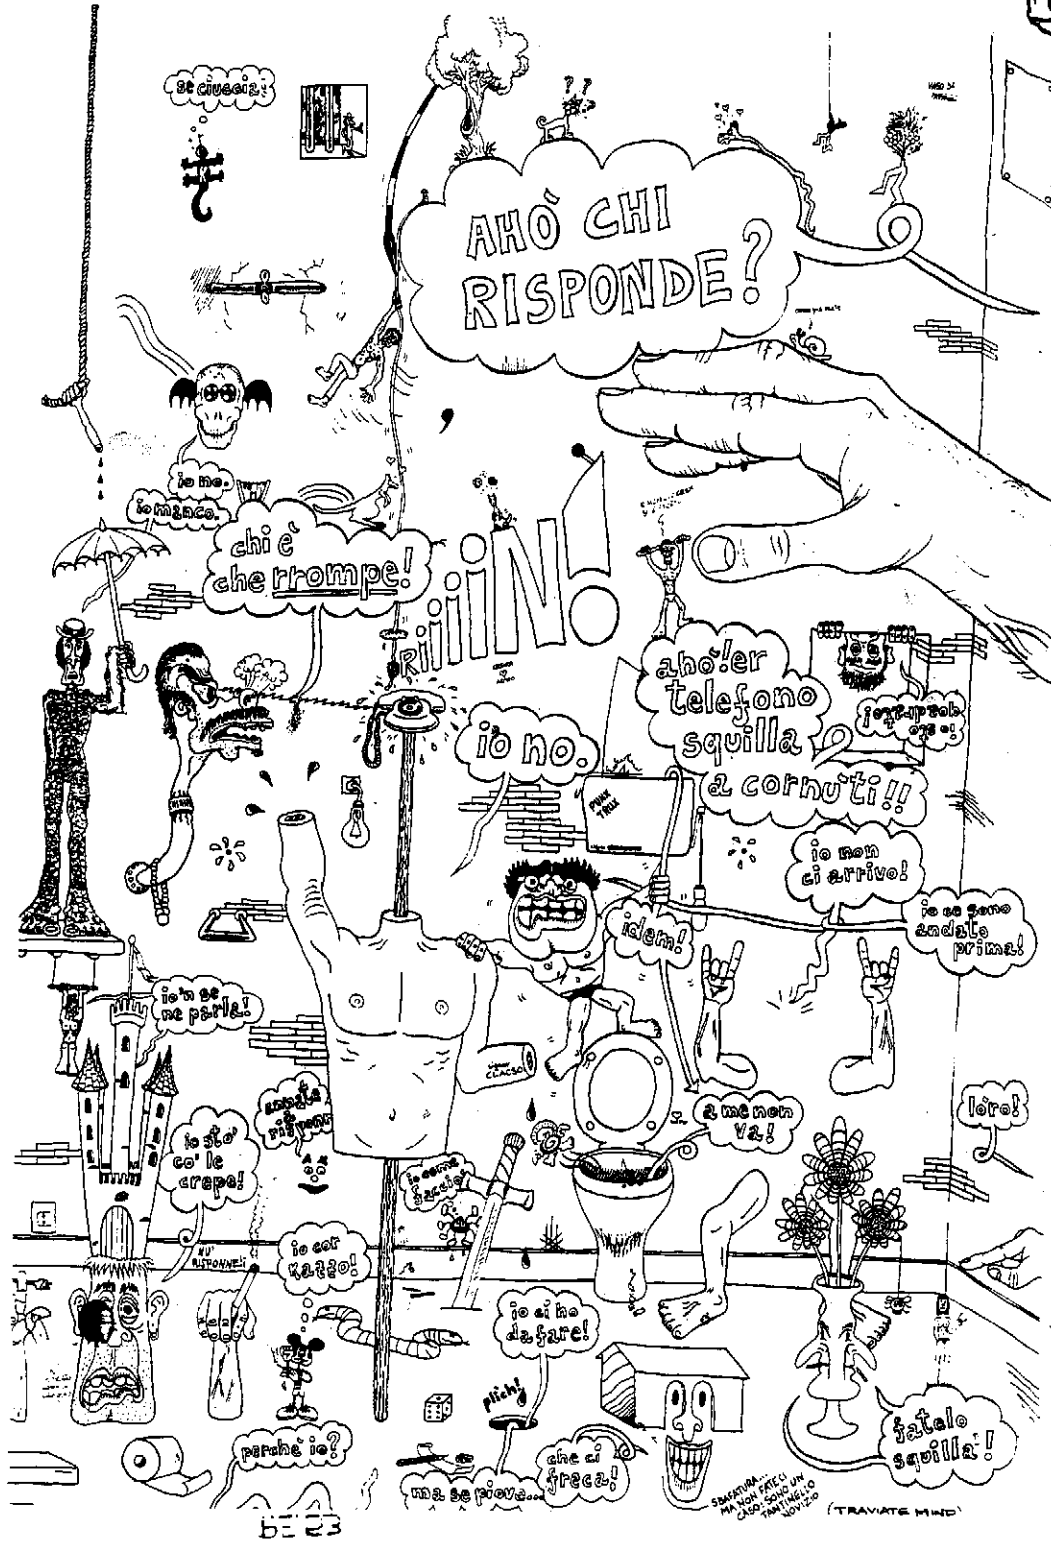 se ciuccia!
AHÒ CHI
RISPONDE?
io no.
io manco.
chi è
che rrompe!
RiiiiiN!
ahò!er
telefono
squilla
a cornuti!!
io no.
PUNX
TRUX
io non
ci arrivo!
io ce sono
andato
prima!
idem!
io'n se
ne parla!
CLACSO
a me non
va!
loro!
io sto'
co' le
crepe!
io come
faccio!
NU'
RISPONNE!!
io cor
kazzo!
io ci ho
da fare!
plich!
perche' io?
ma se piove...
che ci
freca!
fatelo
squilla'!
SBAFATURA...
MA NON FATECI
CASO: SONO UN
TANTINELLO
NOVIZIO
(TRAVIATE MIND)